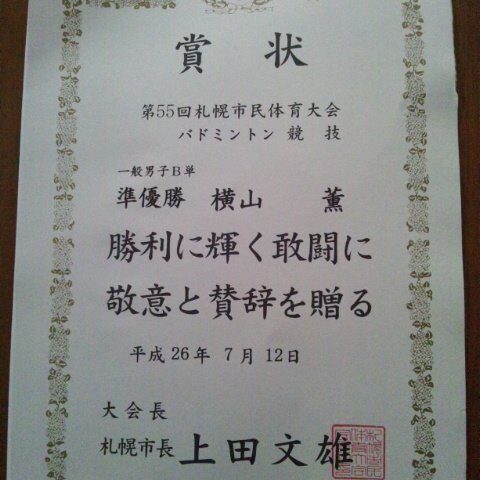 賞状
第55回札幌市民体育大会
バドミントン 競技
一般男子B単
準優勝 横山 薫
勝利に輝く敢闘に
敬意と賛辞を贈る
平成26年7月12日
大会長
札幌市長 上田文雄